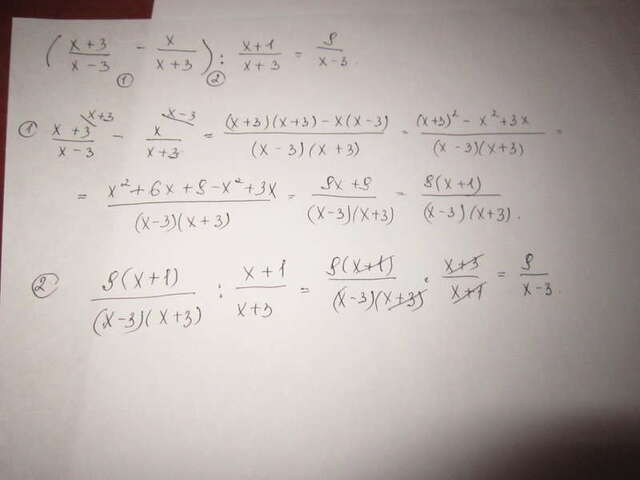 ( (x+3)/(x-3) - x/(x+3) ) : (x+1)/(x+3) = 9/(x-3).
① ②
① (x+3)/(x-3) ^(x+3) - x/(x+3) ^(x-3) = ((x+3)(x+3)-x(x-3))/((x-3)(x+3)) = ((x+3)²-x²+3x)/((x-3)(x+3)) =
= (x²+6x+9-x²+3x)/((x-3)(x+3)) = (9x+9)/((x-3)(x+3)) = 9(x+1)/((x-3)(x+3)).
② 9(x+1)/((x-3)(x+3)) : (x+1)/(x+3) = 9(x+1)/((x-3)(x+3)) · (x+3)/(x+1) = 9/(x-3).